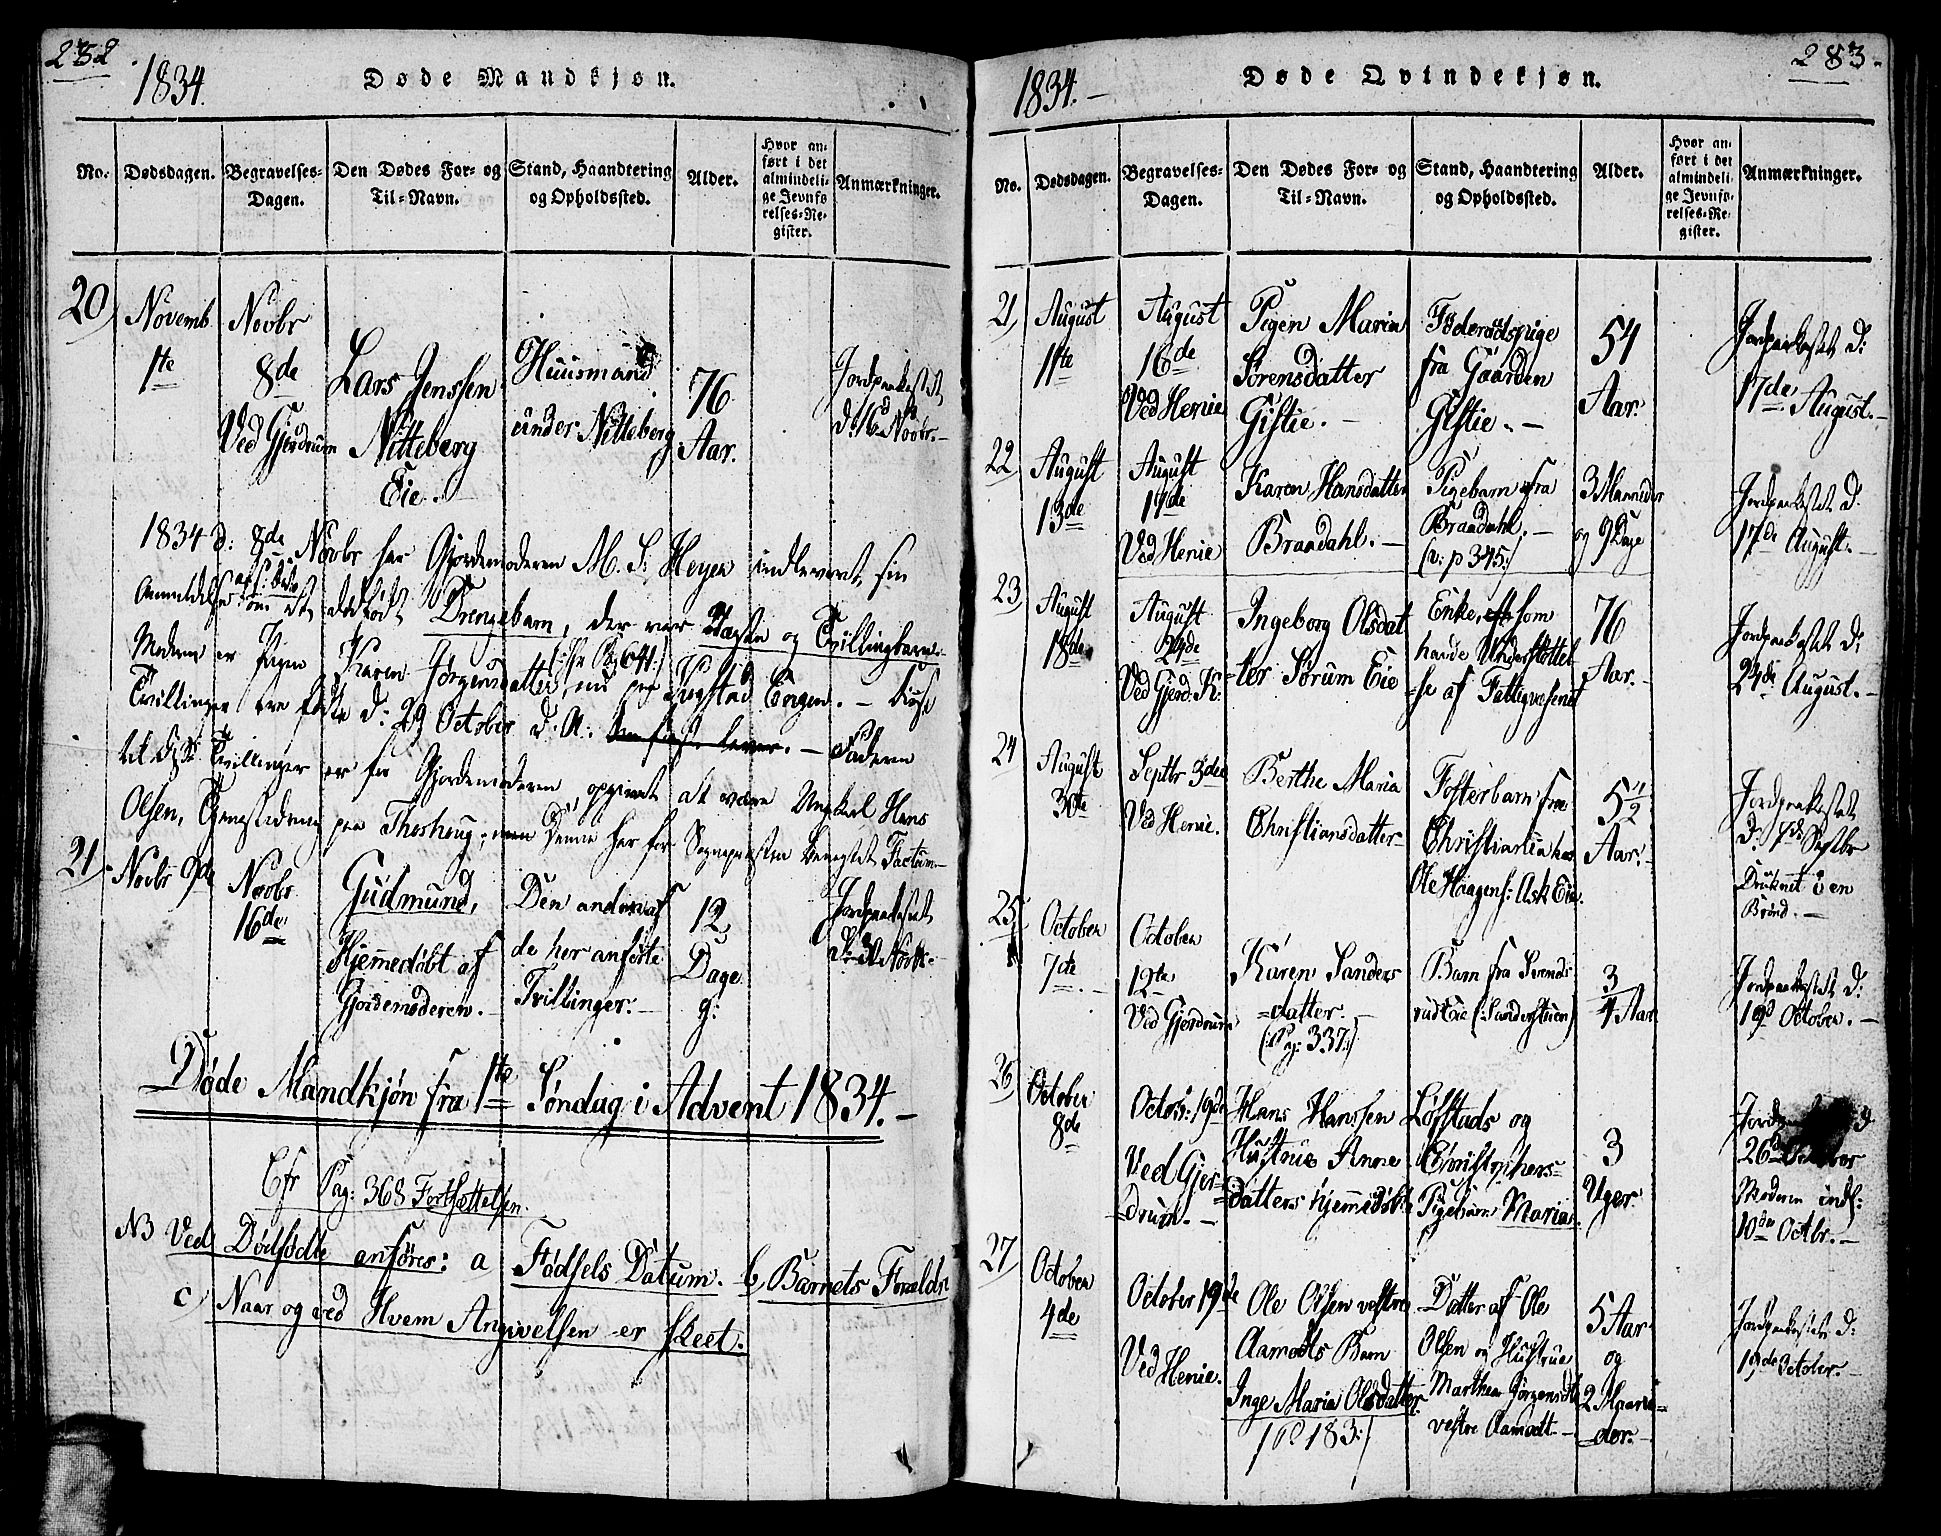 282.
1834.
Døde Mandkjøn.
No.
Dødsdagen.
Begravelses-
Dagen.
Den Dødes For- og
Til-Navn.
Stand, Haandtering
og Opholdssted.
Alder.
Hvor an-
ført i det
almindeli-
ge Jevnfø-
relses-Re-
gister.
Anmærkninger.
20
Novemb.
1te
Novbr
8de
Ved Gjerdrum
Lars Jenssen
Nitteberg
Eie.
Huusmand
under Nitteberg
76
Aar.
Jordpaakastet
d: 16 Novbr.
1834 d: 8de Novbr har Gjordemoderen M. S. Heyer indleveret sin
Anmeldelse om et dødfødt Drengebarn, der var og Tvillingbarn.
Moderen er Pigen Karen Jørgensdatter
(: Pag 641:)
Tvillinger ere fødte d: 29 October d. A:
Faderen
til disse Tvillinger er for Gjordemoderen opgivet at være Ungkarl Hans
Olsen,
21
Novbr 9de
Novbr
16de
Gudmund,
Hjemmedøbt af
Gjordemoderen.
Den anden af
de her anførte
Tvillinger.
12
Dage
g:
Jordpaakastet
Døde Mandkjøn fra 1te Søndag i Advent 1834.
Cfr Pag: 368 Fortsættelsen.
NB Ved Dødfødte anføres: a Fødsels Datum. b, Barnets Forældre
c, Naar og ved Hvem Angivelsen er skeet.
283.
1834.
Døde Qvindekjøn.
No.
Dødsdagen.
Begravelses-
Dagen.
Den Dødes For- og
Til-Navn.
Stand, Haandtering
og Opholdssted.
Alder.
Hvor an-
ført i det
almindeli-
ge Jevnfø-
relses-Re-
gister.
Anmærkninger.
21
August
11te
August
16de
Ved Henie
Pigen Maria
Sørensdatter
Gistie.
Føderaadspige
fra Gaarden
Gistie.
54
Aar.
Jordpaakastet d:
17de August.
22
August
13de
August
17de
Ved Henie
Karen Hansdatter
Braadahl.
Pigebarn fra
Braadahl.
(v: p 345:)
3 Maaneder
og 9 Dage
Jordpaakastet d:
17de August.
23
August
18de
August
24de
Ved Gjerd. K:
Ingeborg Olsdat
=ter Sørum Eie
Enke, som
havde Understøttel
=se af Fattigvæsenet
76
Aar.
Jordpaakastet d:
24de August.
24
August
30te
Septbr 3de
Ved Henie.
Berthe Maria
Christiansdatter
Fosterbarn fra
Christiania hos
Ole Haagens: Ask Eie.
5½
Aar.
Jordpaakastet
d: 7de Septbr
Druknet i en
Brønd.
25
October
7de
October
12te
Ved Gjerdrum
Karen Sanders
=datter.
(: Pag: 337:)
Barn fra Svends
rud Eie (: Sanderstuen)
3/4 Aar
Jordpaakastet d:
19d October.
26
October
8de
Octob: 19de
Ved Gjer-
=drum.
Hans Hanssen
Hustrue Anne
datters hjemmedøbte
Løfstads og
Christophers-
Pigebarn Maria.
3
Uger.
26de October
Moderen indl:
10de Octbr.
27
October
4de
October 19de
Ved Henie.
Ole Olsen vestre
Aamodts Barn
Inge Maria Olsdatter.
Datter af Ole
Olsen og Hustrue
Marthea Jørgensdtr
vestre Aamodt
5 Aar
og
2 Maane=
=der.
Jordpaakastet d:
19de October.